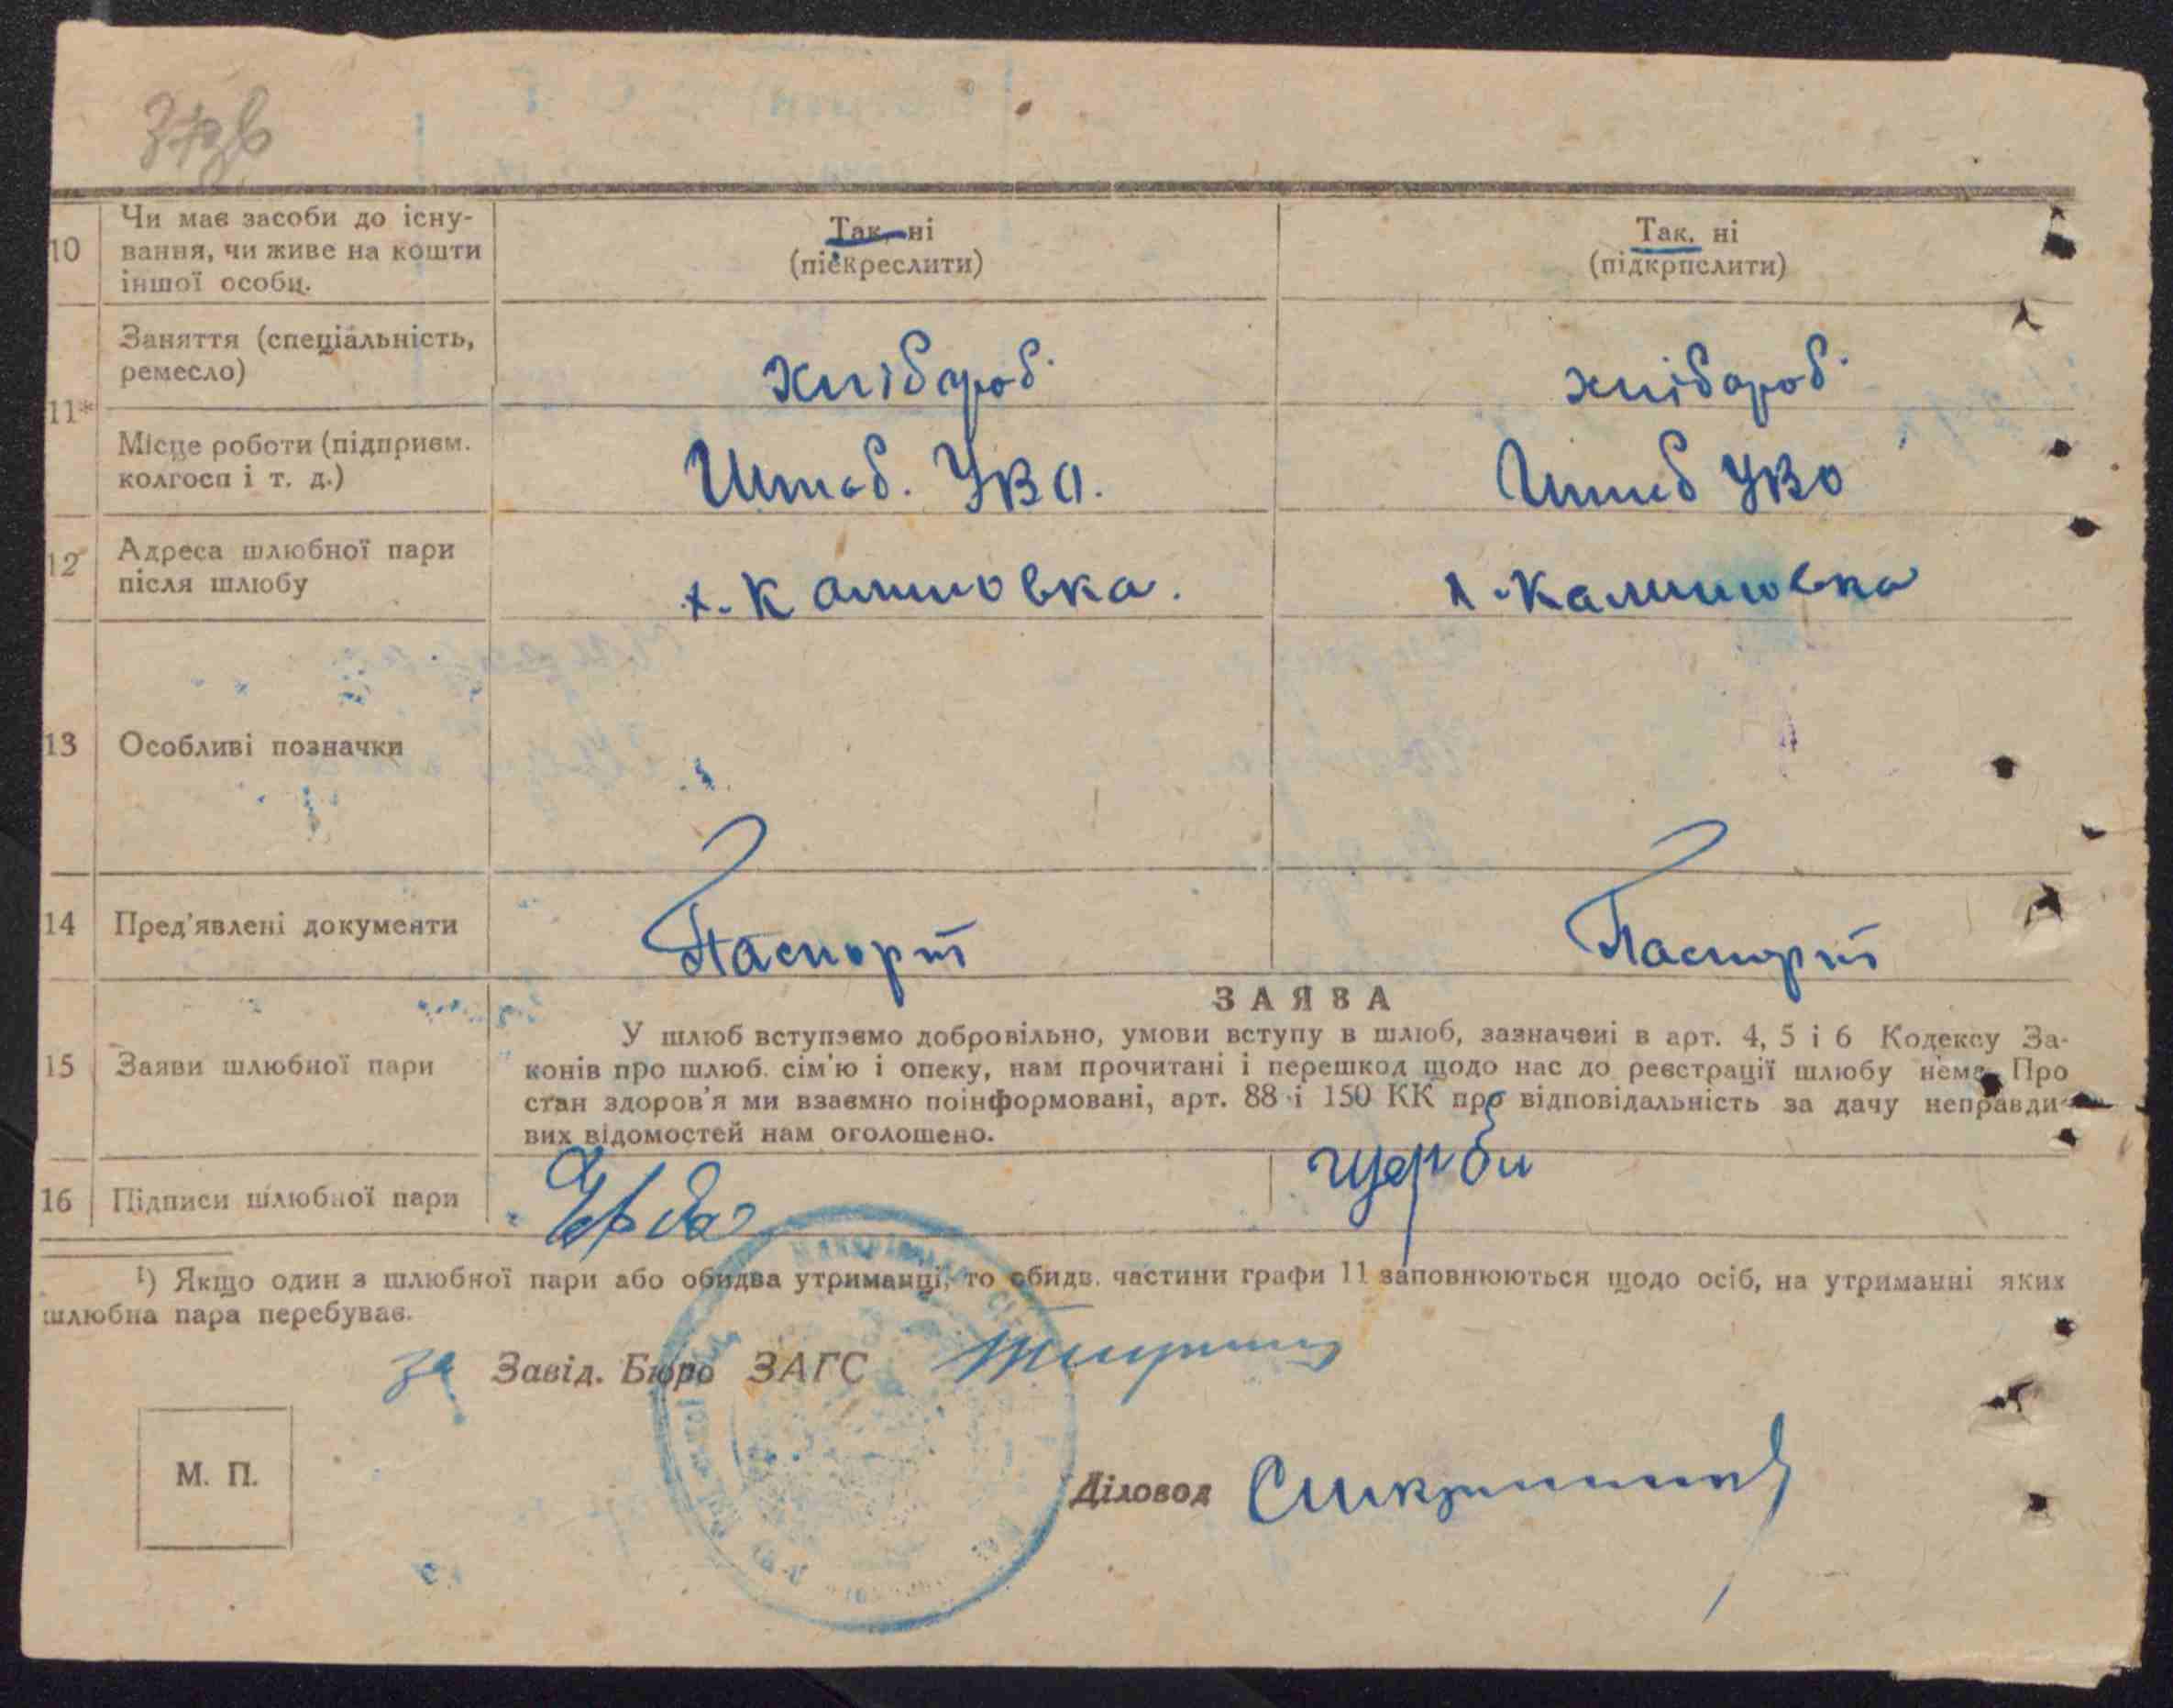 37зв
10 Чи має засоби до існу- Так, ні Так, ні
вання, чи живе на кошти (підкреслити) (підкрпслити)
іншої особи.
Заняття (спеціальність, хлібороб. хлібороб.
ремесло)
11*
Місце роботи (підприєм. Штаб. УВО. Штаб УВО
колгосп і т. д.)
12 Адреса шлюбної пари х. Калиновка. х. Калиновка
після шлюбу
13 Особливі позначки
14 Пред'явлені документи Паспорт Паспорт
ЗАЯВА
У шлюб вступаємо добровільно, умови вступу в шлюб, зазначені в арт. 4, 5 і 6 Кодексу За-
15 Заяви шлюбної пари конів про шлюб. сім'ю і опеку, нам прочитані і перешкод щодо нас до реєстрації шлюбу нема. Про
стан здоров'я ми взаємно поінформовані, арт. 88 і 150 КК про відповідальність за дачу неправди-
вих відомостей нам оголошено.
16 Підписи шлюбної пари
¹) Якщо один з шлюбної пари або обидва утриманці, то обидв. частини графи 11 заповнюються щодо осіб, на утриманні яких
шлюбна пара перебуває.
за Завід. Бюро ЗАГС
М. П.
Діловод